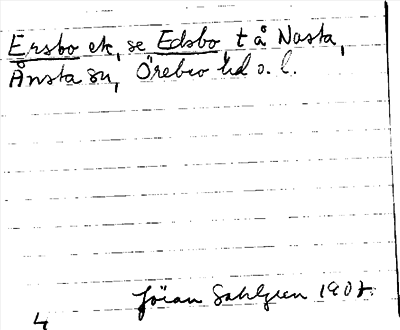 Ersbo ek, se Edsbo, t å Nasta,
Ånsta sn, Örebro hd o. l.
Jöran Sahlgren 1907.
4